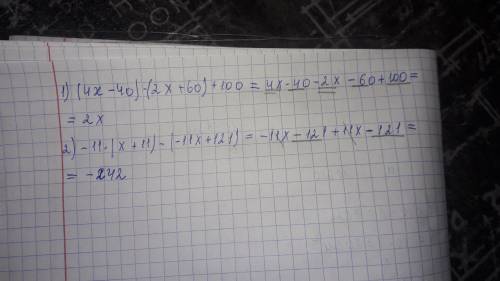 1) (4x-40)-(2x+60)+100 = 4x-40-2x-60+100=
= 2x
2) -11·(x+11)-(-11x+121) = -11x-121+11x-121=
= -242